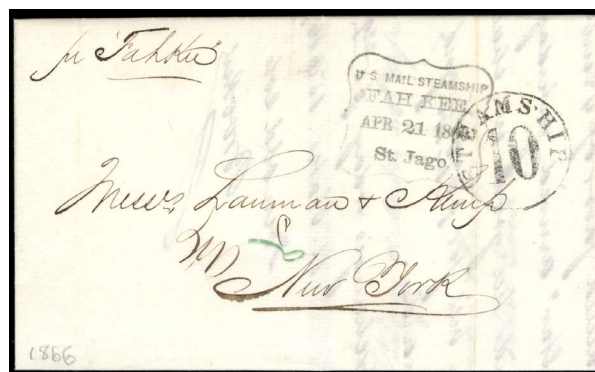 pr "Fahkee"
U.S. MAIL STEAMSHIP
FAH KEE
APR 21 18
St. Jago
STEAMSHIP
10
Messrs Lanman & Kemp
New York
1866